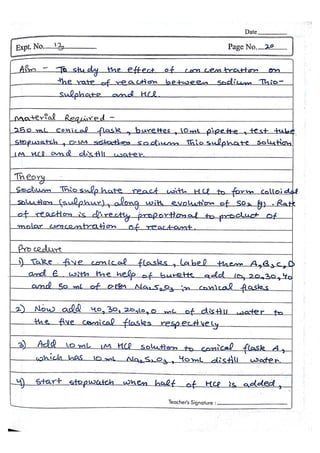 Date
Expt. No. 13
Page No. 20
Aim - To study the effect of concentration on
the rate of reaction between sodium Thio-
sulphate and HCl.
Material Required -
250 mL conical flask, burettes, 10 ml pipette, test tube
stopwatch, 0.1M sodium Thiosulphate solution
1M HCl and distill water.
Theory
Sodium Thiosulphate react with HCl to form colloidal
solution (sulphur), along with evolution of SO2 (g). Rate
of reaction is directly proportional to product of
molar concentration of reactant.
Procedure
1) Take five conical flasks, Label them A, B, C, D
and E with the help of burette add 10, 20, 30, 40
and 50 ml of Na2S2O3 in conical flasks
2) Now add 40, 30, 20, 10, 0 mL of distill water to
the five conical flasks respectively
3) Add 10 mL 1M HCl solution to conical flask A,
which has 10 mL Na2S2O3, 40 mL distill water.
4) Start stopwatch when half of HCl is added,
Teacher's Signature :